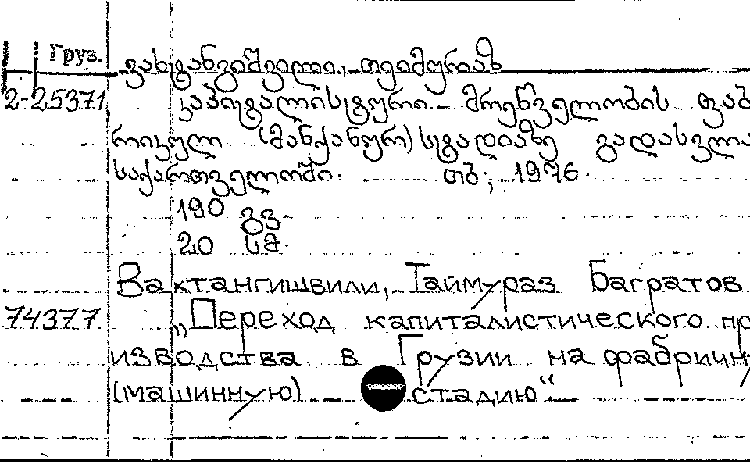 Груз.
ვახტანგიშვილი, თეიმურაზ
2-25371 კაპიტალისტური მრეწველობის ფაბ
რიკულ (მანქანურ) სტადიაზე გადასვლა
საქართველოში. თბ., 1976.
190 გვ.
20 სმ.
Вактангишвили, Таймураз Багратов
74377 „Переход капиталистического пр
изводства в Грузии на фабричн
(машинную) стадию“